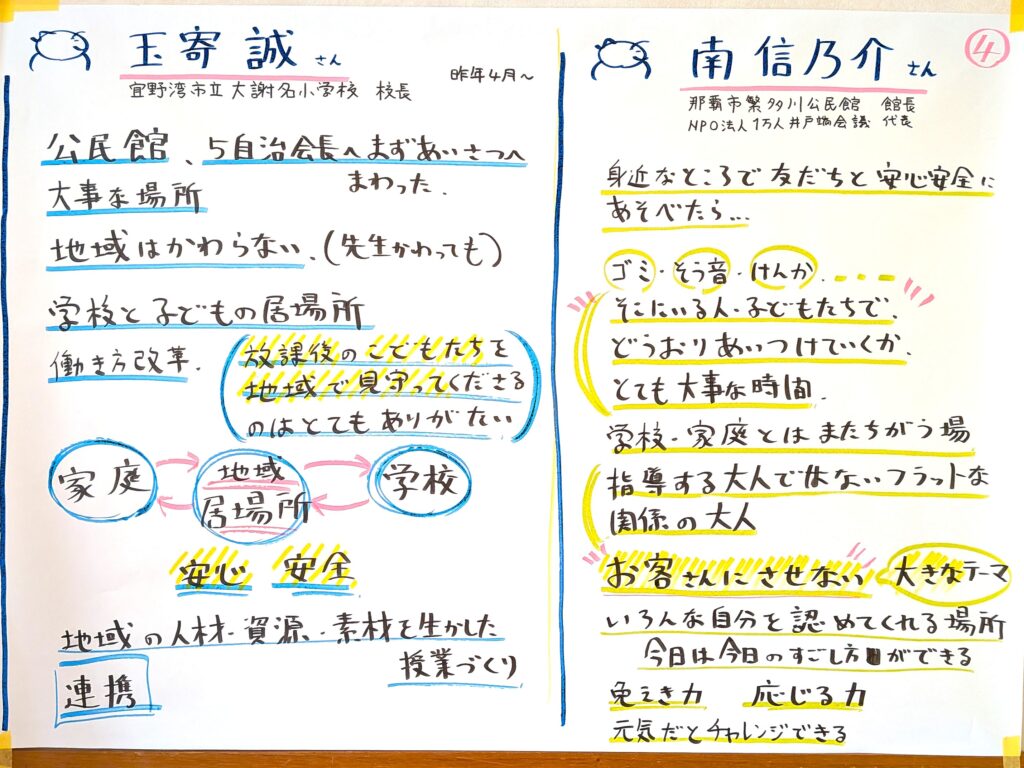 玉寄誠さん
宜野湾市立大謝名小学校 校長
昨年4月〜
公民館、5自治会長へまずあいさつへ
まわった.
大事な場所
地域はかわらない.(先生かわっても)
学校と子どもの居場所
働き方改革.
放課後のこどもたちを
地域で見守ってくださる
のはとてもありがたい
家庭
地域
居場所
学校
安心 安全
地域の人材・資源・素材を生かした
授業づくり
連携
④
南信乃介さん
那覇市繁多川公民館 館長
NPO法人1万人井戸端会議 代表
身近なところで友だちと安心安全に
あそべたら...
ゴミ・そう音・けんか....
そこにいる人・子どもたちで.
どうおりあいつけていくか.
とても大事な時間.
学校・家庭とはまたちがう場
指導する大人ではないフラットな
関係の大人
お客さんにさせない 大きなテーマ
いろんな自分を認めてくれる場所
今日は今日のすごし方ができる
免えき力 応じる力
元気だとチャレンジできる